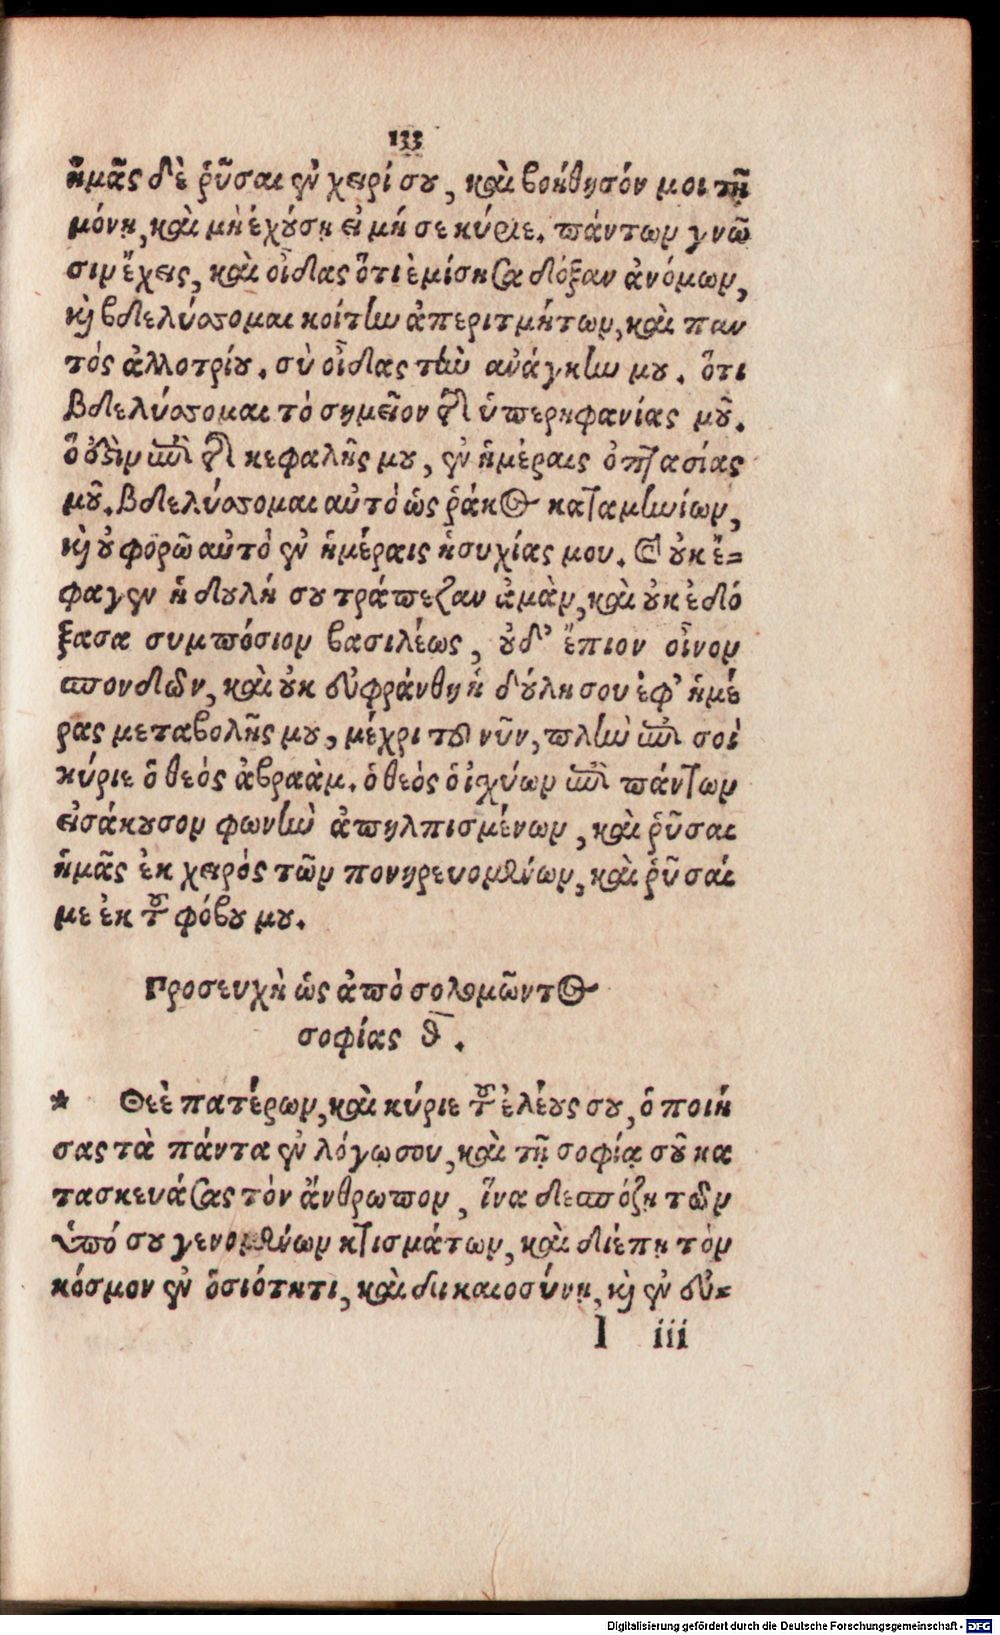 133
ἡμᾶς δὲ ῥῦσαι ἐν χειρί σου, καὶ βοήθησόν μοι τῇ
μόνῃ, καὶ μὴ ἐχούσῃ εἰ μή σε κύριε. πάντων γνῶ
σιν ἔχεις, καὶ οἶδας ὅτι ἐμίσησα δόξαν ἀνόμων,
καὶ βδελύσσομαι κοίτην ἀπεριτμήτων, καὶ παν
τός ἀλλοτρίου. σὺ οἶδας τὴν ἀνάγκην μου. ὅτι
βδελύσσομαι τὸ σημεῖον τῆς ὑπερηφανίας μοῦ.
ὅ ὅδειν ἐπὶ τῆς κεφαλῆς μου, ἐν ἡμέραις ὀπτασίας
μοῦ. βδελύσσομαι αὐτὸ ὡς ῥάκος καταμηνίων,
καὶ οὐ φορῶ αὐτὸ ἐν ἡμέραις ἡσυχίας μου. Οὐκ ἔ=
φαγεν ἡ δουλή σου τράπεζαν ἀμὰν, καὶ οὐκ ἐδό
ξασα συμπόσιον βασιλέως, οὐδ' ἔπιον οἶνον
σπονδῶν, καὶ οὐκ εὐφράνθη ἡ δούλη σου ἐφ' ἡμέ
ρας μεταβολῆς μου, μέχρι τοῦ νῦν, πλὴν ἐπὶ σοὶ
κύριε ὁ θεὸς ἀβραὰμ. ὁ θεὸς ὁ ἰσχύων ἐπὶ πάντων
εἰσάκουσον φωνὴν ἀπηλπισμένων, καὶ ῥῦσαι
ἡμᾶς ἐκ χειρός τῶν πονηρευομένων, καὶ ῥῦσαί
με ἐκ τοῦ φόβου μου.
Προσευχὴ ὡς ἀπὸ σολομῶντος
σοφίας θ.
* Θεὲ πατέρων, καὶ κύριε τοῦ ἐλέους σου, ὁ ποιή
σας τὰ πάντα ἐν λόγῳ σου, καὶ τῇ σοφίᾳ σοῦ κα
τασκευάσας τὸν ἄνθρωπον, ἵνα δεσπόζῃ τῶν
ὑπό σου γενομένων κτισμάτων, καὶ διέπῃ τὸν
κόσμον ἐν ὁσιότητι, καὶ δικαιοσύνῃ, καὶ ἐν εὐ=
l iii
Digitalisierung gefördert durch die Deutsche Forschungsgemeinschaft - DFG